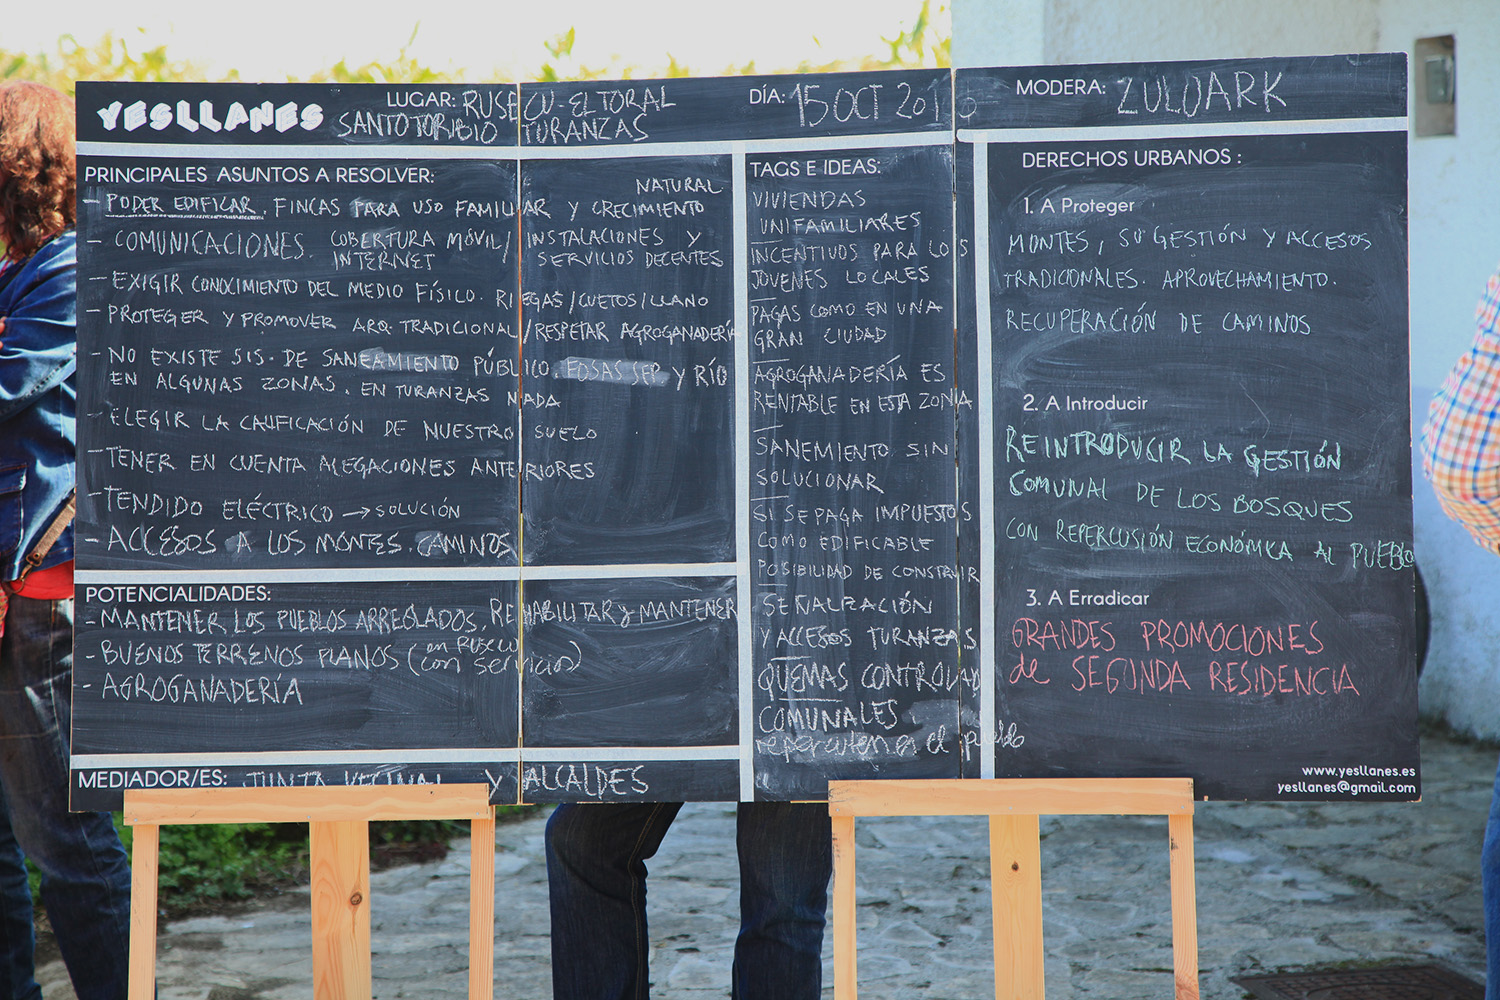 YESLLANES
LUGAR: RUSECU - EL TORAL
SANTOTORIBIO TURANZAS
DÍA: 15 OCT 201
MODERA: ZULOARK
PRINCIPALES ASUNTOS A RESOLVER:
NATURAL
- PODER EDIFICAR. FINCAS PARA USO FAMILIAR Y CRECIMIENTO
- COMUNICACIONES. COBERTURA MÓVIL/ INSTALACIONES Y
INTERNET SERVICIOS DECENTES
- EXIGIR CONOCIMIENTO DEL MEDIO FÍSICO. RIEGAS/CUETOS/LLANO
- PROTEGER Y PROMOVER ARQ. TRADICIONAL/RESPETAR AGROGANADERÍA
- NO EXISTE SIS. DE SANEAMIENTO PÚBLICO. FOSAS SEP Y RÍO
EN ALGUNAS ZONAS. EN TURANZAS NADA
- ELEGIR LA CALIFICACIÓN DE NUESTRO SUELO
- TENER EN CUENTA ALEGACIONES ANTERIORES
- TENDIDO ELÉCTRICO → SOLUCIÓN
- ACCESOS A LOS MONTES. CAMINOS
POTENCIALIDADES:
- MANTENER LOS PUEBLOS ARREGLADOS, REHABILITAR Y MANTENER
- BUENOS TERRENOS PLANOS (en RUSECU
con servicios)
- AGROGANADERÍA
MEDIADOR/ES: JUNTA VECINAL Y ALCALDES
TAGS E IDEAS:
VIVIENDAS
UNIFAMILIARES
INCENTIVOS PARA LOS
JÓVENES LOCALES
PAGAS COMO EN UNA
GRAN CIUDAD
AGROGANADERÍA ES
RENTABLE EN ESTA ZONA
SANEMIENTO SIN
SOLUCIONAR
SI SE PAGA IMPUESTOS
COMO EDIFICABLE
POSIBILIDAD DE CONSTRUIR
SEÑALIZACIÓN
Y ACCESOS TURANZAS
QUEMAS CONTROLAD
COMUNALES
repercuten en el pueblo
DERECHOS URBANOS :
1. A Proteger
MONTES, SU GESTIÓN Y ACCESOS
TRADICIONALES. APROVECHAMIENTO.
RECUPERACIÓN DE CAMINOS
2. A Introducir
REINTRODUCIR LA GESTIÓN
COMUNAL DE LOS BOSQUES
CON REPERCUSIÓN ECONÓMICA AL PUEBLO
3. A Erradicar
GRANDES PROMOCIONES
de SEGUNDA RESIDENCIA
www.yesllanes.es
yesllanes@gmail.com